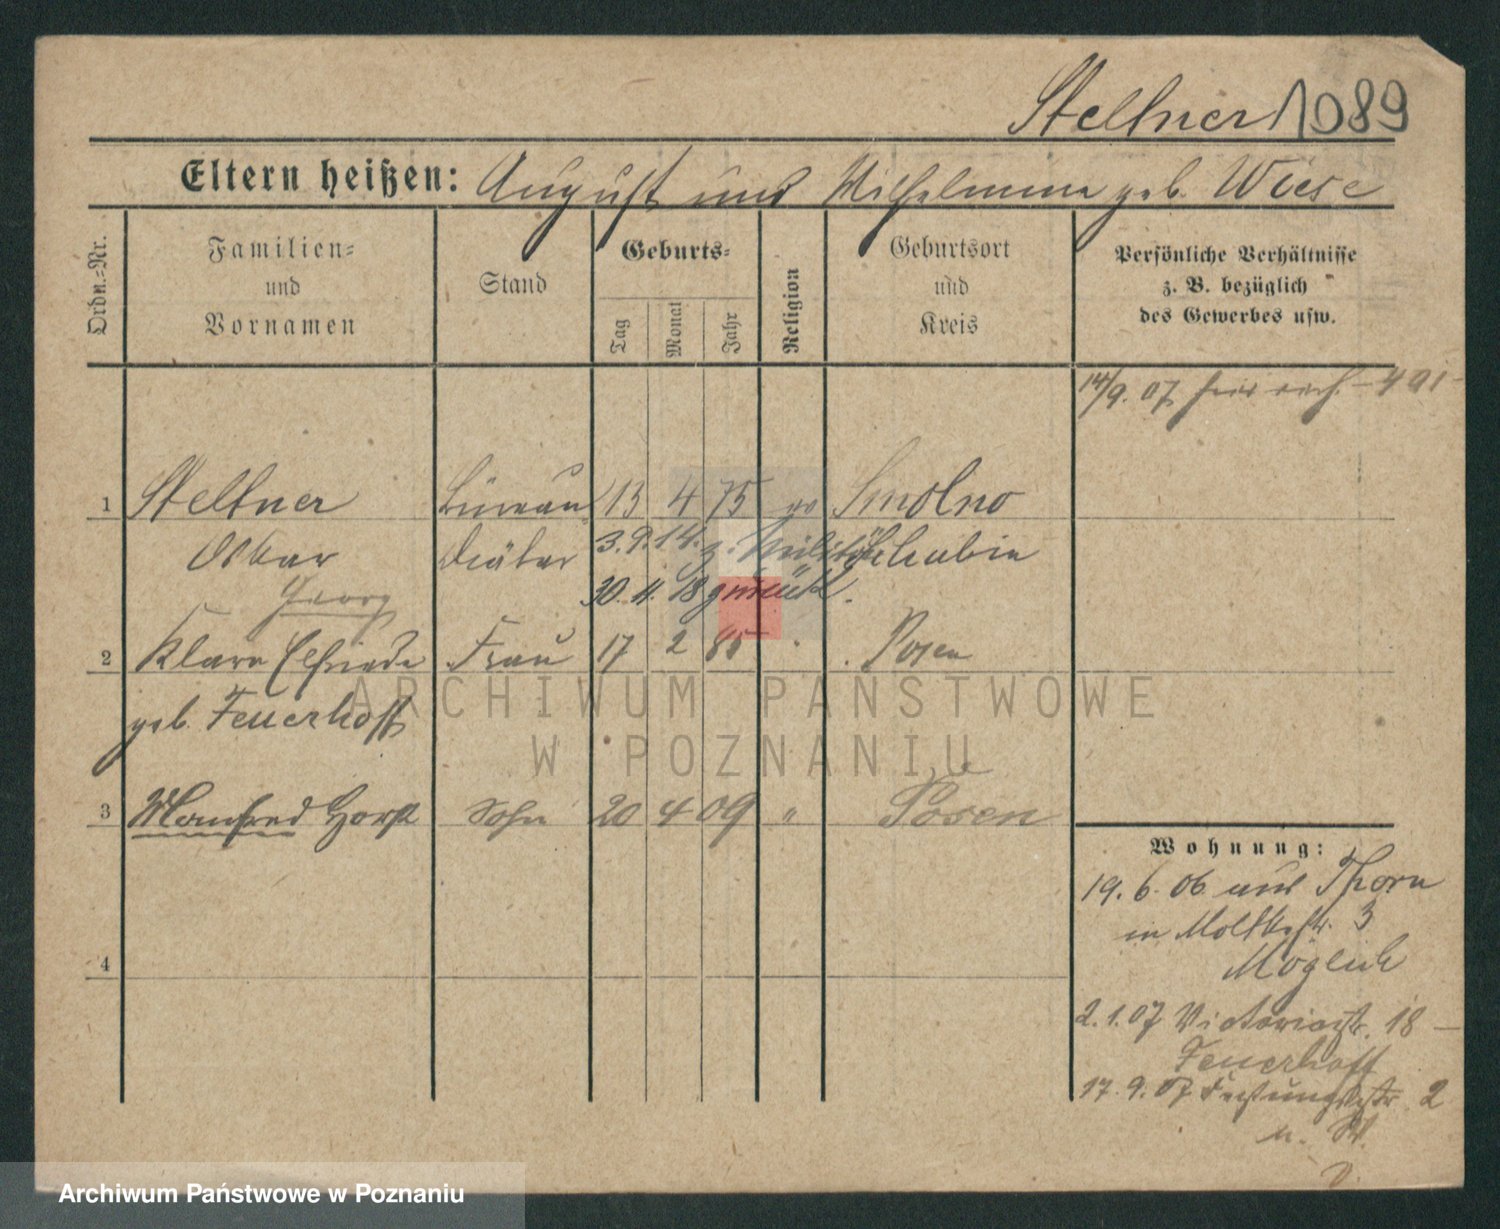 Steltner 1089
Eltern heißen: August und Wilhelmine geb. Wiese
Ordn.=Nr.
Familien=
und
Vornamen
Stand
Geburts=
Tag
Monat
Jahr
Religion
Geburtsort
und
Kreis
Persönliche Verhältnisse
z. B. bezüglich
des Gewerbes usw.
14/9. 07
1 Steltner Büreau 13 4 75 ev Smolno
Oskar Diätar 3.9.14. z. Militär Schubin
Georg 30. 11. 18 zurück.
2 Klara Elfriede Frau 17 2 85 " Posen
geb. Feuerhoff
3 Manfred Horst Sohn 20 4 09 " Posen
4
Wohnung:
19. 6. 06 aus Thorn
in Moltkestr. 3
Möglich
2. 1. 07 Victoriastr. 18 —
Feuerhoff
17. 9. 07 Festungsstr. 2
ARCHIWUM PAŃSTWOWE
W POZNANIU
Archiwum Państwowe w Poznaniu